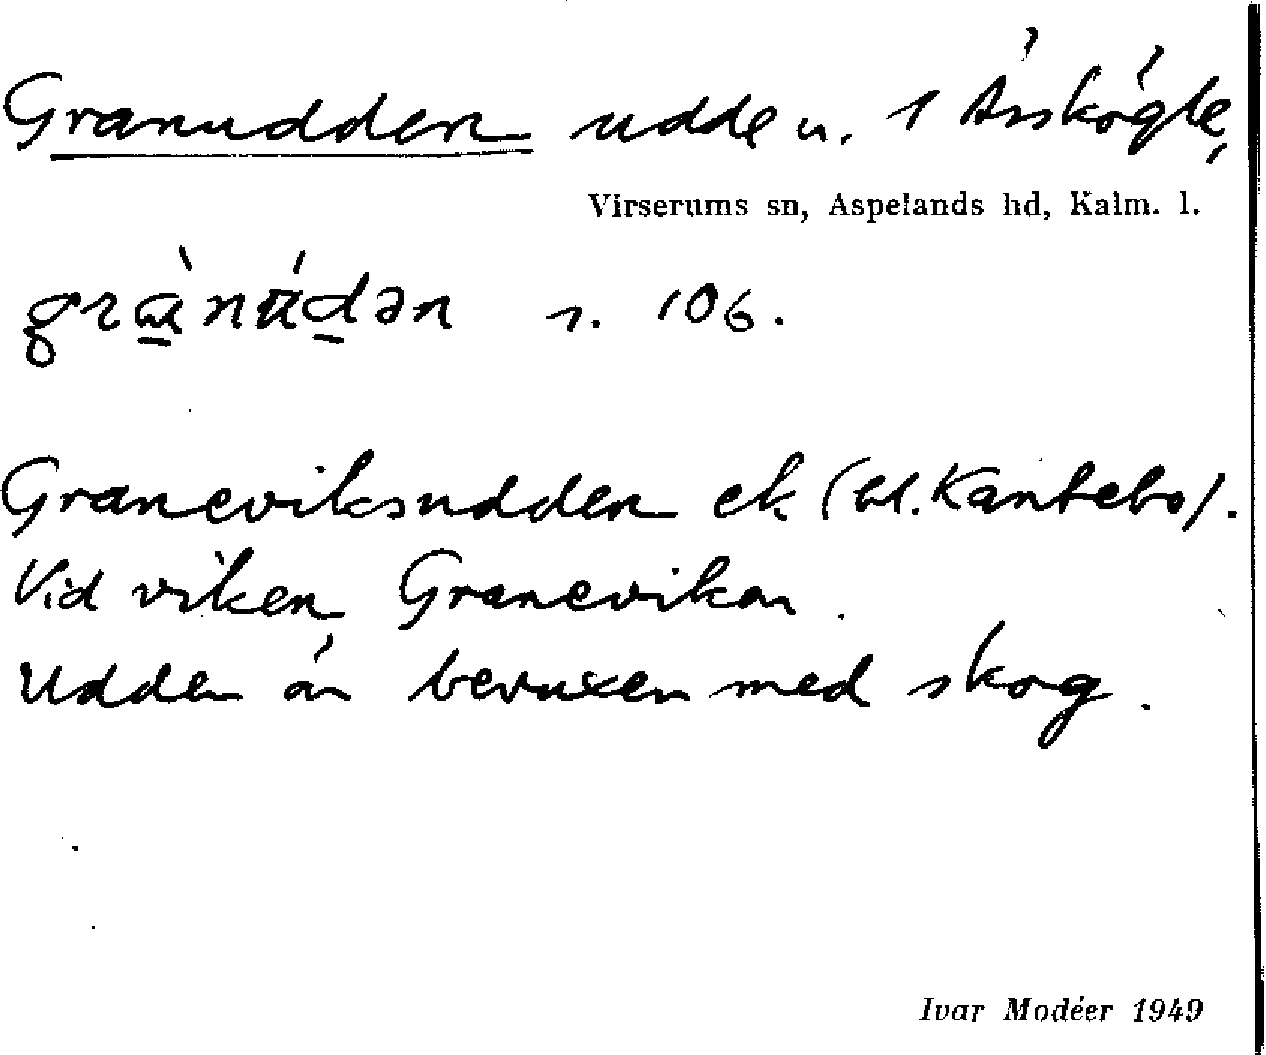 Granudden udde u. 1 Ärskögle,
Virserums sn, Aspelands hd, Kalm. l.
s. 106.
Graneviksudden ek (bl. Kantebo).
Vid viken Granevikan.
Udden är bevuxen med skog.
Ivar Modéer 1949